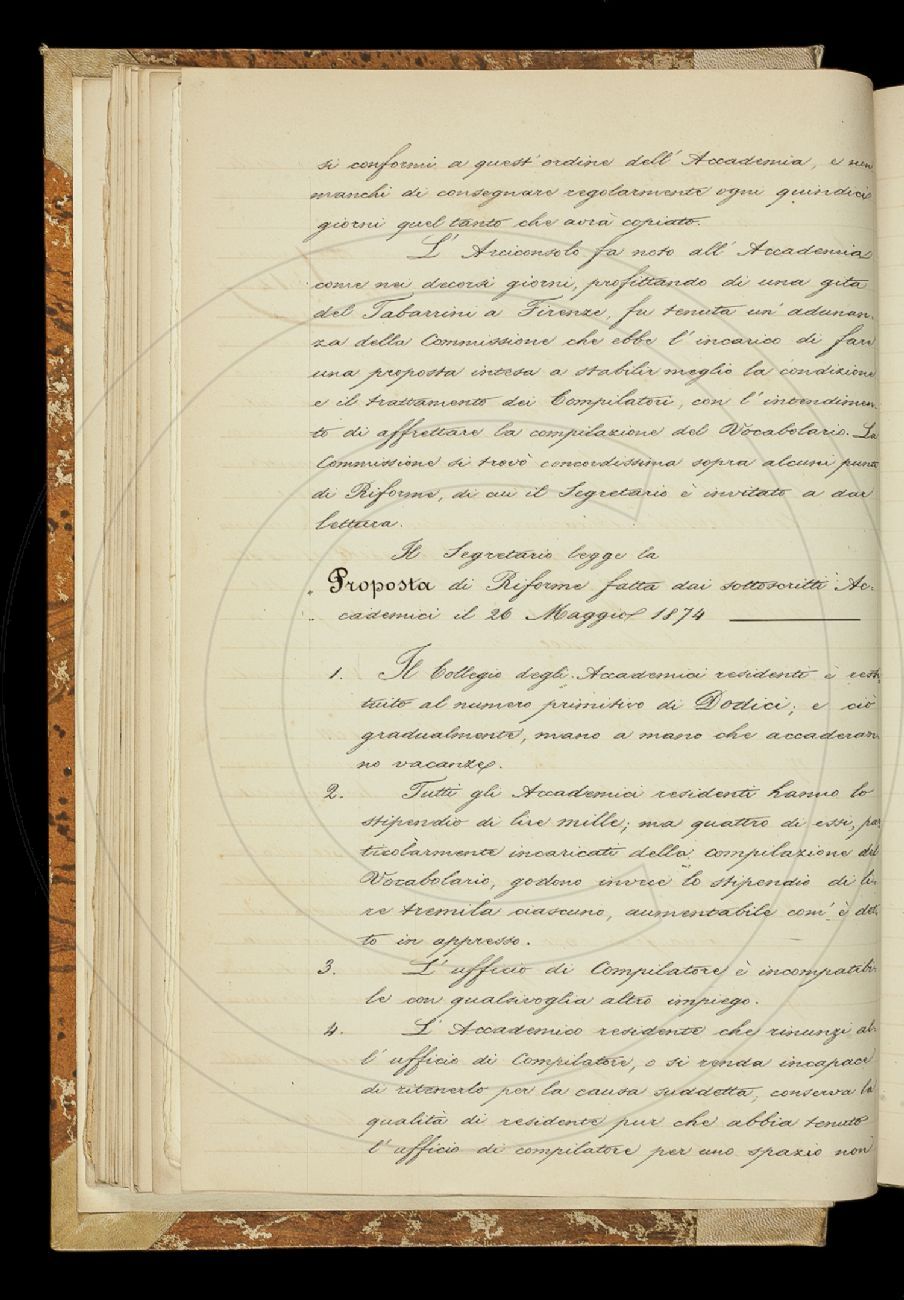 si conformi a quest' ordine dell' Accademia, e non
manchi di consegnare regolarmente ogni quindici
giorni quel tanto che avrà copiato.
L' Arciconsolo fa noto all' Accademia
come nei decorsi giorni, profittando di una gita
del Tabarrini a Firenze, fu tenuta un' adunan-
za della Commissione che ebbe l' incarico di fare
una proposta intesa a stabilir meglio la condizione
e il trattamento dei Compilatori, con l' intendimen-
to di affrettare la compilazione del Vocabolario. La
Commissione si trovò concordissima sopra alcuni punti
di Riforme, di cui il Segretario è invitato a dar
lettura.
Il Segretario legge la
Proposta di Riforme fatta dai sottoscritti Ac-
cademici il 26 Maggio 1874
1. Il Collegio degli Accademici residenti è resti-
tuito al numero primitivo di Dodici; e ciò
gradualmente, mano a mano che accaderan-
no vacanze.
2. Tutti gli Accademici residenti hanno lo
stipendio di lire mille; ma quattro di essi, par-
ticolarmente incaricati della compilazione del
Vocabolario, godono invece lo stipendio di li-
re tremila ciascuno, aumentabile com' è det-
to in appresso.
3. L' ufficio di Compilatore è incompatibi-
le con qualsivoglia altro impiego.
4. L' Accademico residente che rinunzi al-
l' ufficio di Compilatore, o si renda incapace
di ritenerlo per la causa suddetta, conserva la
qualità di residente pur che abbia tenuto
l' ufficio di compilatore per uno spazio non